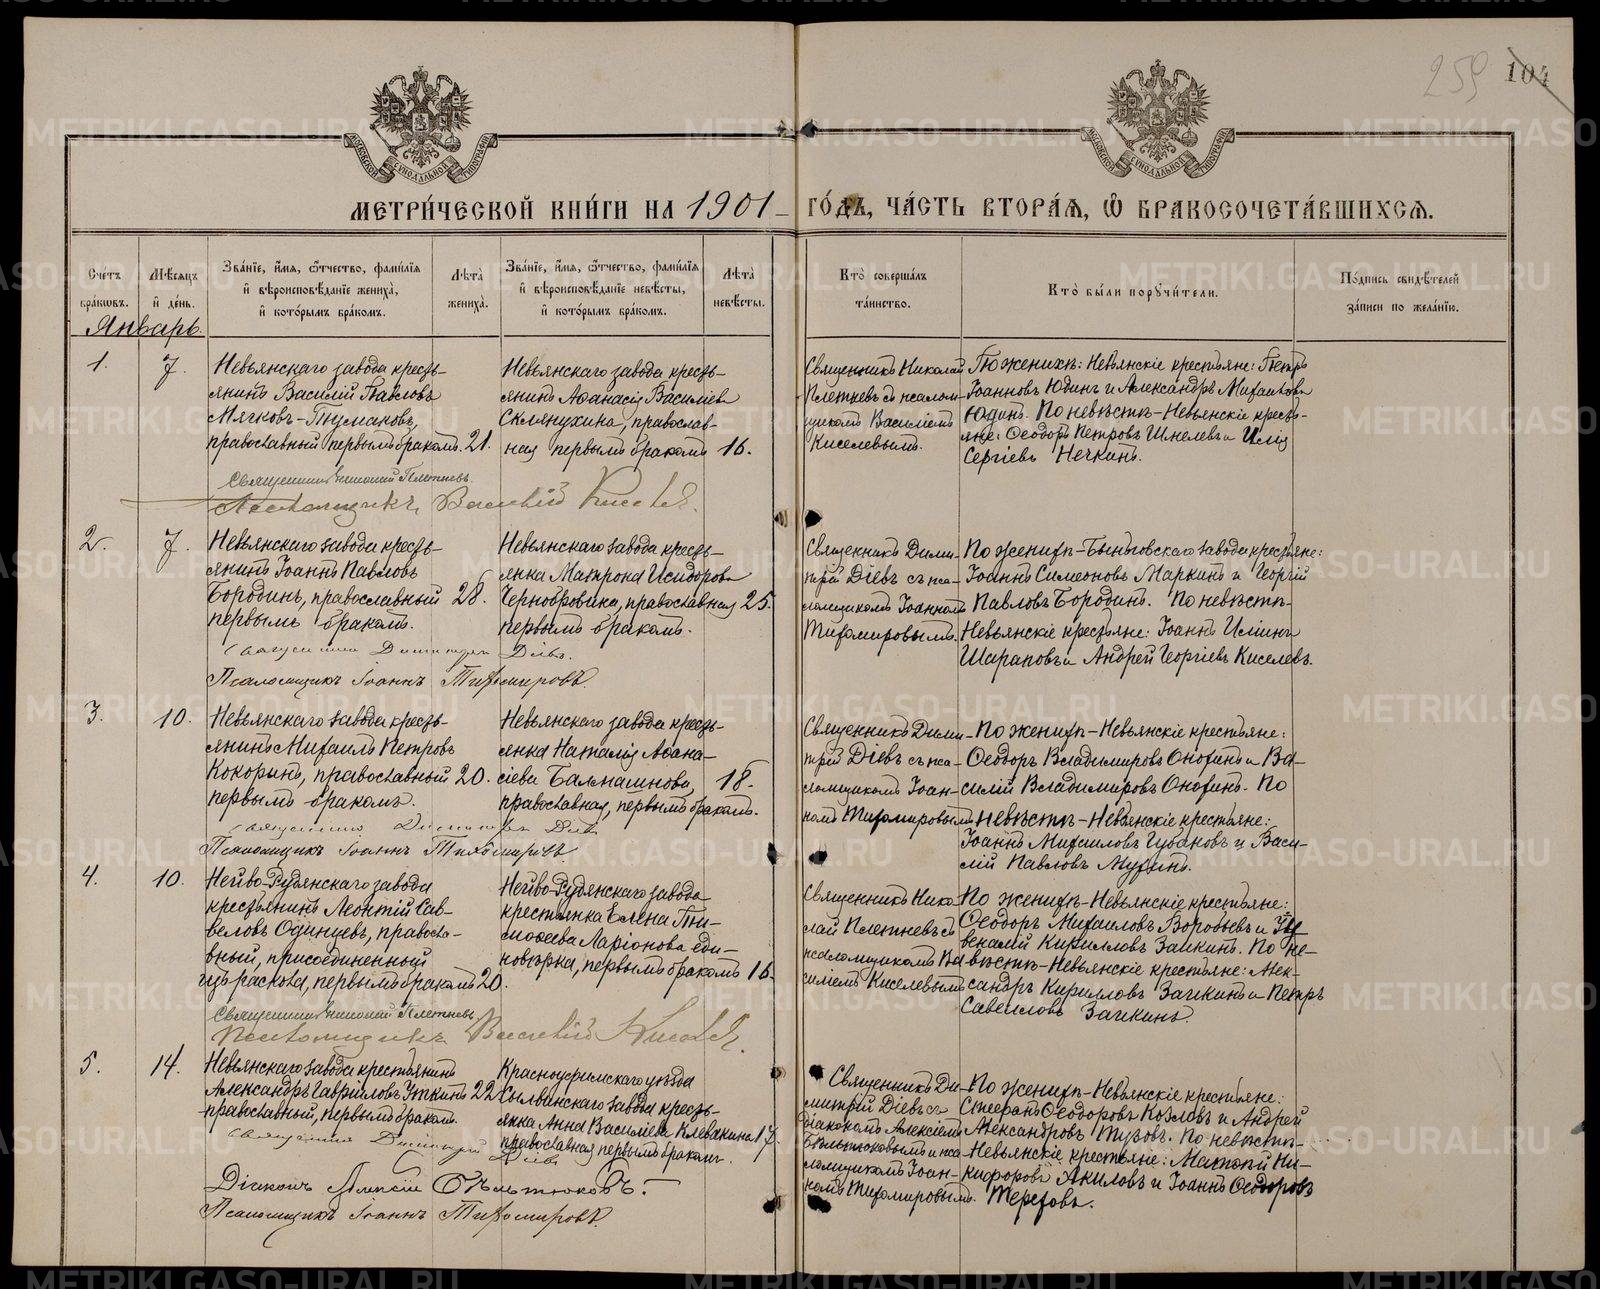 259
104
МОСКОВСКОЙ СѴНОДАЛЬНОЙ ТИПОГРАФІИ
МОСКОВСКОЙ СѴНОДАЛЬНОЙ ТИПОГРАФІИ
МЕТРИ́ЧЕСКОЙ КНИ́ГИ НА 1901 ГО́ДЪ, ЧА́СТЬ ВТОРА́Ѧ, Ѿ БРАКОСОЧЕТА́ВШИХСѦ.
Сче́тъ бра́кѡвъ.
Мѣ́сѧцъ и҆ де́нь.
Зва́нїе, и҆́мѧ, ѻ҆́тчество, фами́лїѧ и҆ вѣроисповѣ́данїе жениха̀, и҆ кото́рымъ бра́комъ.
Лѣ́та̀ жениха̀.
Зва́нїе, и҆́мѧ, ѻ҆́тчество, фами́лїѧ и҆ вѣроисповѣ́данїе невѣ́сты, и҆ кото́рымъ бра́комъ.
Лѣ́та̀ невѣ́сты.
Кто̀ соверша́лъ та́инство.
Кто̀ бы́ли порꙋчи́тели.
По́дпись свидѣ́телей за́писи по жела́нїю.
Январь.
1.
7.
Невьянскаго завода кресть-
янинъ Василій Павловъ
Мягковъ-
православный первымъ бракомъ.
21.
Невьянскаго завода кресть-
янина Аѳанасія Василіева
православ-
ная первымъ бракомъ
16.
Священникъ Николай
Плетневъ съ псалом-
щикомъ Василіемъ
Киселевымъ.
По женихѣ: Невьянскіе крестьяне: Петръ
Іоанновъ Юдинъ и Александръ Михаиловъ
Юдинъ. По невѣстѣ-Невьянскіе кресть-
яне: Ѳеодоръ Петровъ Шмелевъ и Илія
Сергіевъ Нечкинъ.
Священникъ Николай Плетневъ.
Псаломщикъ Василій Киселев.
2.
7.
Невьянскаго завода кресть-
янинъ Іоаннъ Павловъ
Бородинъ, православный
первымъ бракомъ.
28.
Невьянскаго завода кресть-
янка Матрона Исидорова
Чернобровина, православная
первымъ бракомъ.
25.
Священникъ Дими-
трій Діевъ съ пса-
ломщикомъ Іоанномъ
Тихомировымъ.
По женихѣ-Быньговскаго завода крестьяне:
Іоаннъ Симеоновъ Маркинъ и Георгій
Павловъ Бородинъ. По невѣстѣ-
Невьянскіе крестьяне: Іоаннъ Иліинъ
Шараповъ и Андрей Георгіевъ Киселевъ.
Священникъ Димитрій Діевъ.
Псаломщикъ Іоаннъ Тихомировъ.
3.
10.
Невьянскаго завода кресть-
янинъ Михаилъ Петровъ
Кокоринъ, православный
первымъ бракомъ.
20.
Невьянскаго завода кресть-
янка Наталія Аѳана-
сіева Балмашнова,
православная, первымъ бракомъ.
18.
Священникъ Дими-
трій Діевъ съ пса-
ломщикомъ Іоан-
номъ Тихомировымъ
По женихѣ-Невьянскіе крестьяне:
Ѳеодоръ Владимировъ Онохинъ и Ва-
силій Владимировъ Онохинъ. По
невѣстѣ-Невьянскіе крестьяне:
Іоаннъ Михаиловъ Губановъ и Васи-
лій Павловъ Мухинъ.
Священникъ Димитрій Діевъ
Псаломщикъ Іоаннъ Тихомировъ.
4.
10.
Нейво-Рудянскаго завода
крестьянинъ Леонтій Сав-
веловъ Одинцевъ, правосла-
вный, присоединенный
изъ раскола, первымъ бракомъ
20.
Нейво-Рудянскаго завода
крестьянка Елена Ти-
моѳеева Ларіонова еди-
новѣрка, первымъ бракомъ
16.
Священникъ Нико-
лай Плетневъ съ
псаломщикомъ Ва-
силіемъ Киселевымъ
По женихѣ-Невьянскіе крестьяне:
Ѳеодоръ Михаиловъ Воробьевъ и
Кирилловъ Заикинъ. По не-
вѣстѣ-Невьянскіе крестьяне: Алек-
сандръ Кирилловъ Заикинъ и Петръ
Савеиловъ Заикинъ.
Священникъ Николай Плетневъ
Псаломщикъ Василій Киселев.
5.
14.
Невьянскаго завода крестьянинъ
Александръ Гавріиловъ Уткинъ
православный, первымъ бракомъ.
22
Красноуфимскаго уѣзда
Сылвинскаго завода кресть-
янка Анна Василіева Клевакина
православная первымъ бракомъ.
17.
Священникъ Ди-
митрій Діевъ съ
діакономъ Алексіемъ
Бѣльтюковымъ и пса-
ломщикомъ Іоан-
номъ Тихомировымъ.
По женихѣ-Невьянскіе крестьяне:
Стефанъ Ѳеодоровъ Козловъ и Андрей
Александровъ Тузовъ. По невѣстѣ-
Невьянскіе крестьяне: Матѳій Ни-
кифоровъ Акиловъ и Іоаннъ Ѳеодоровъ
Тереховъ.
Священникъ Димитрій Діевъ
Діаконъ Алексій Бѣльтюковъ.
Псаломщикъ Іоаннъ Тихомировъ.
METRIKI.GASO-URAL.RU